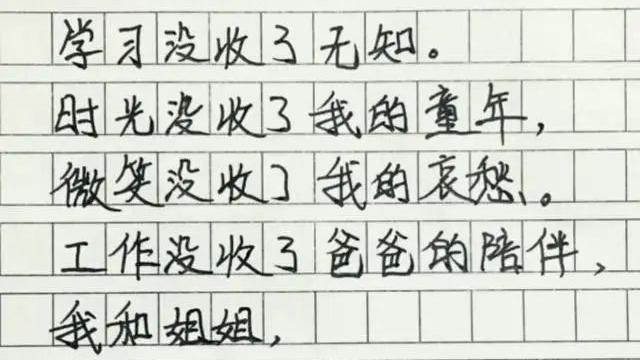 学习没收了无知。
时光没收了我的童年，
微笑没收了我的哀愁。
工作没收了爸爸的陪伴，
我和姐姐，